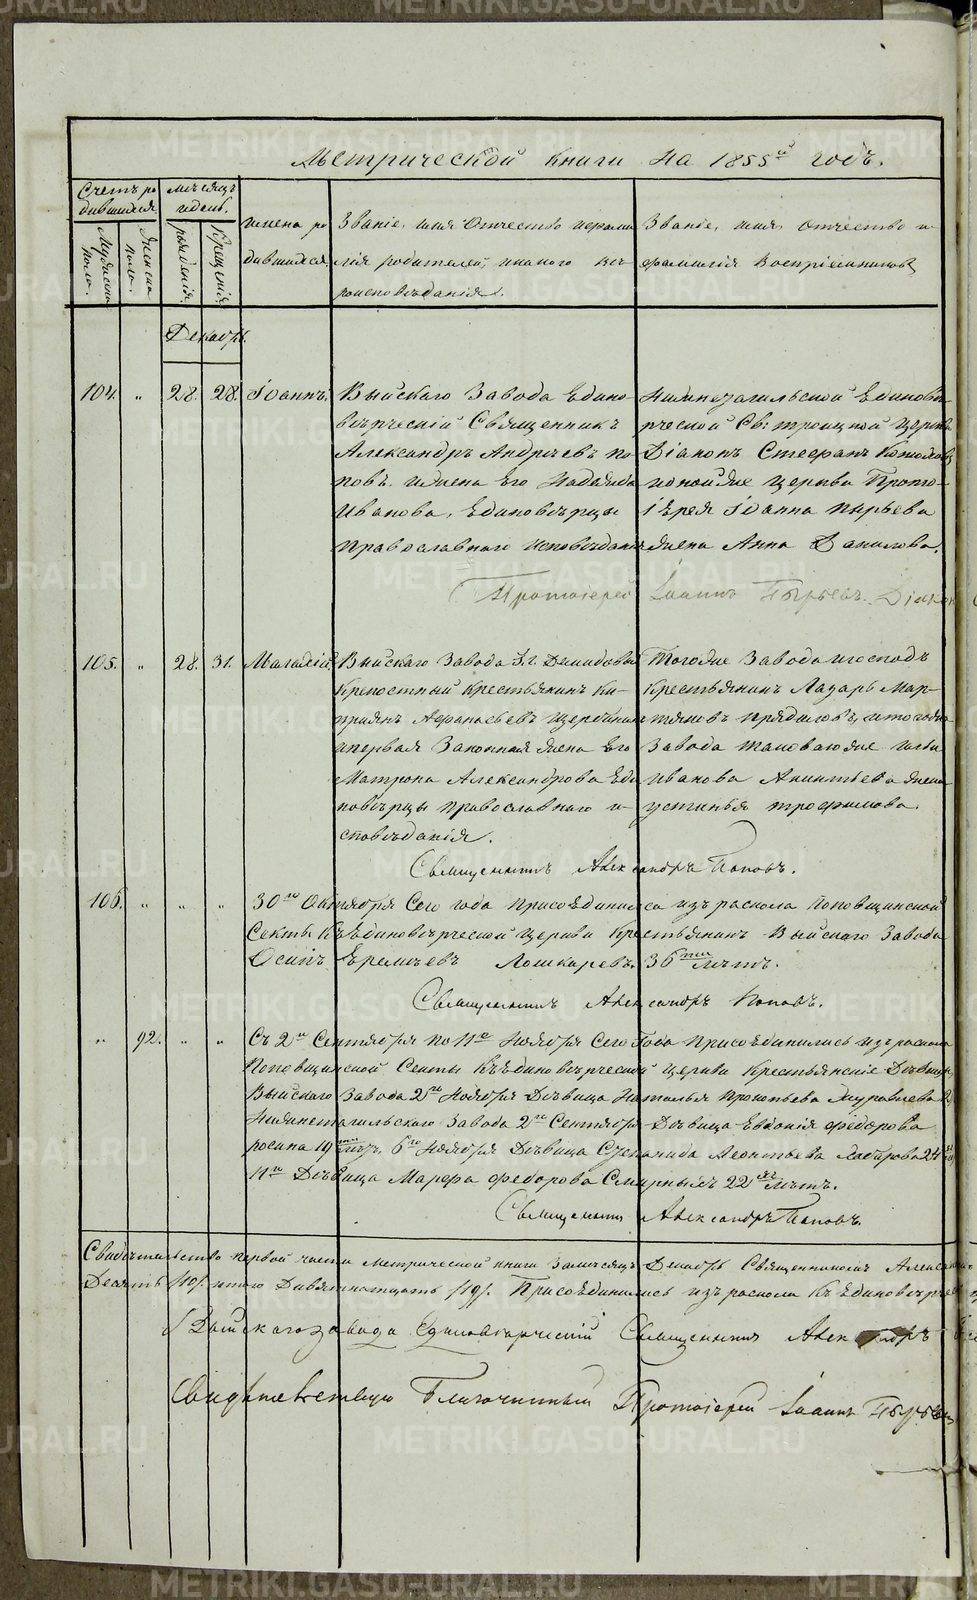 Метрической книги на 1855й годъ.
Счетъ ро
дившихся
Мужеска
пола.
Женска
пола.
Мѣсяцъ
и день.
рожденія
крещенія
имена ро
дившихся.
Званіе, имя Отчество и фами
лія родителей, и какого вѣ
роисповѣданія.
Званіе, имя, отчество и
фамилія Воспріемниковъ
Декабрь.
104. „ 28. 28. Іоаннъ.
Выйскаго Завода Едино
вѣрческій Священникъ
Александръ Андреевъ По
повъ и жена Его Надежда
Иванова, Единовѣрцы
Православнаго исповѣданія
Нижнетагильской Единовѣ
рческой Св: троицкой Церкви
Діаконъ Стефанъ
и тойже Церкви Прото
іерея Іоанна Пырьева
жена Анна Данилова.
Протоіерей Іоаннъ Пырьевъ. Діакон
105. „ 28. 31. Малахій.
Выйскаго Завода Г.г. Демидовыхъ
Крепостный Крестьянинъ Ки-
пріянъ Афанасьевъ
и первая Законная жена Его
Матрона Александрова Еди
новѣрцы православнаго и-
сповѣданія.
Тогоже Завода и господъ
Крестьянинъ Лазарь Мар-
тяновъ и тогоже
Завода таковагоже
Иванова жена
устинья трофимова.
Священникъ Александръ Поповъ.
106. „ „ „ 30го Октября Сего года присоединился изъ раскола Поповщинской
Секты Къ Единовѣрческой Церкви Крестьянинъ Выйскаго Завода
Осипъ Еремѣевъ Лошкаревъ 36ти лѣтъ.
Священникъ Александръ Поповъ.
„ 92. „ „ Съ 2го Сентября по 11е Ноября Сего Года Присоединились изъ раскола
Поповщинской Секты Къ Единовѣрческой Церкви Крестьянскіе Дѣвицы
Выйскаго Завода 2го Ноября Дѣвица Наталья Прокопьева Журавлева
Нижнетагильскаго Завода 2го Сентября Дѣвица Евдокія федорова
19ти лѣтъ, 6го Ноября Дѣвица Степанида Леонтьева 24
11го Дѣвица Марфа федорова Смирныхъ 22хъ лѣтъ.
Священникъ Александръ Поповъ.
Свидѣтельство первой части метрической книги за мѣсяцъ Декабрь Священникомъ Алексан
Десять /10/. итого Дивятнатцать /19/. Присоединились изъ раскола Къ Единовѣрчес
Выйскаго завода Единовѣрческій Священникъ Александръ
Свидѣтельствую Благочинный Протоіерей Іоаннъ Пырьевъ
METRIKI.GASO-URAL.RU